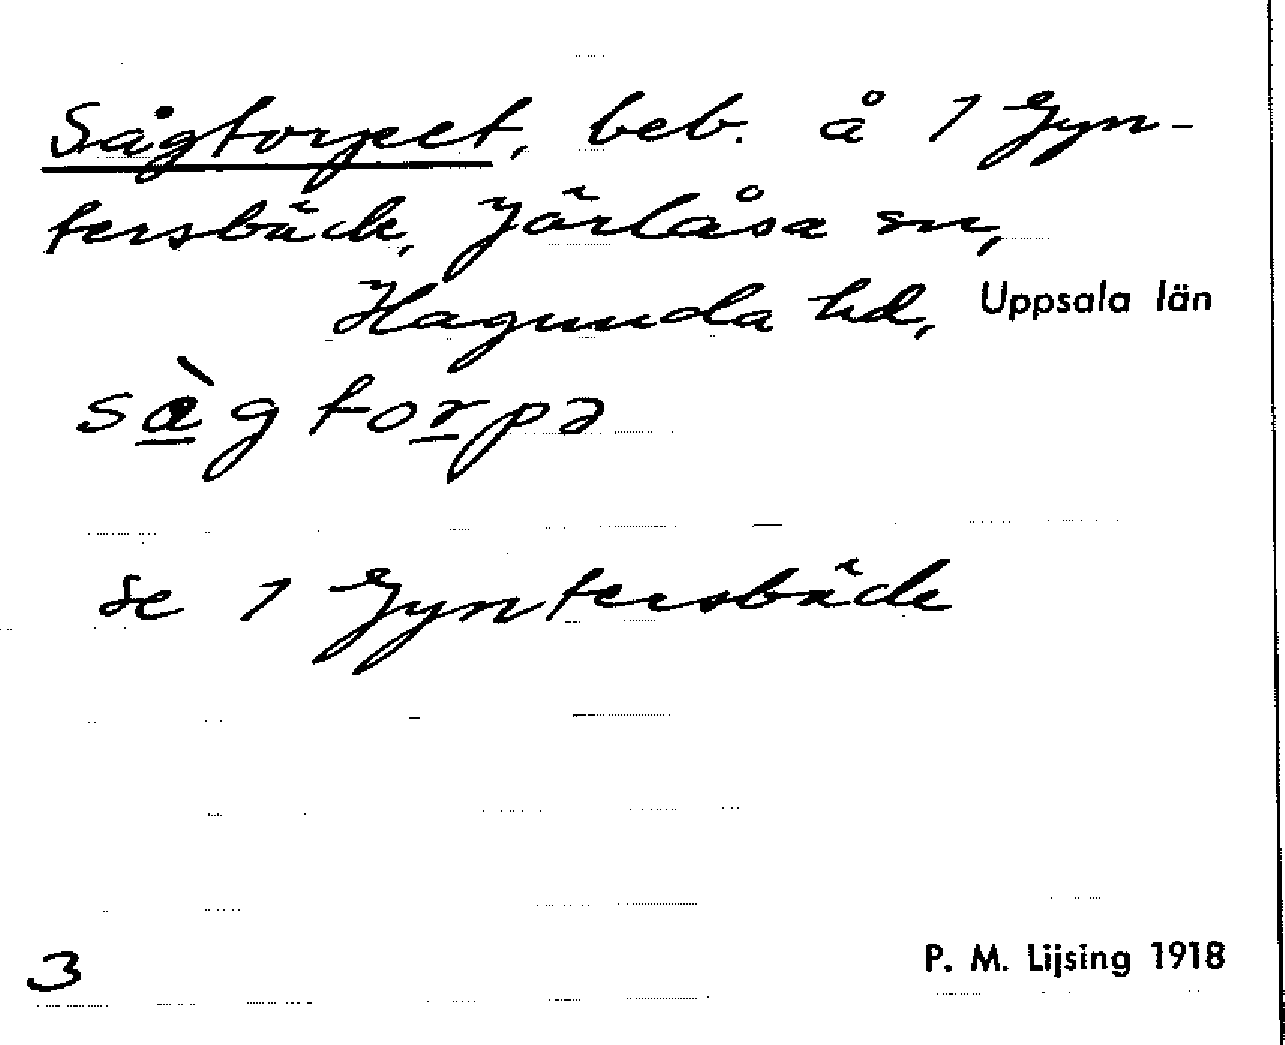 Sågtorpet, beb. å 1 Gyn-
tersbäck, Järlåsa sn,
Hagunda hd, Uppsala län
sàg torpə
se 1 Gyntersbäck
3
P. M. Lijsing 1918